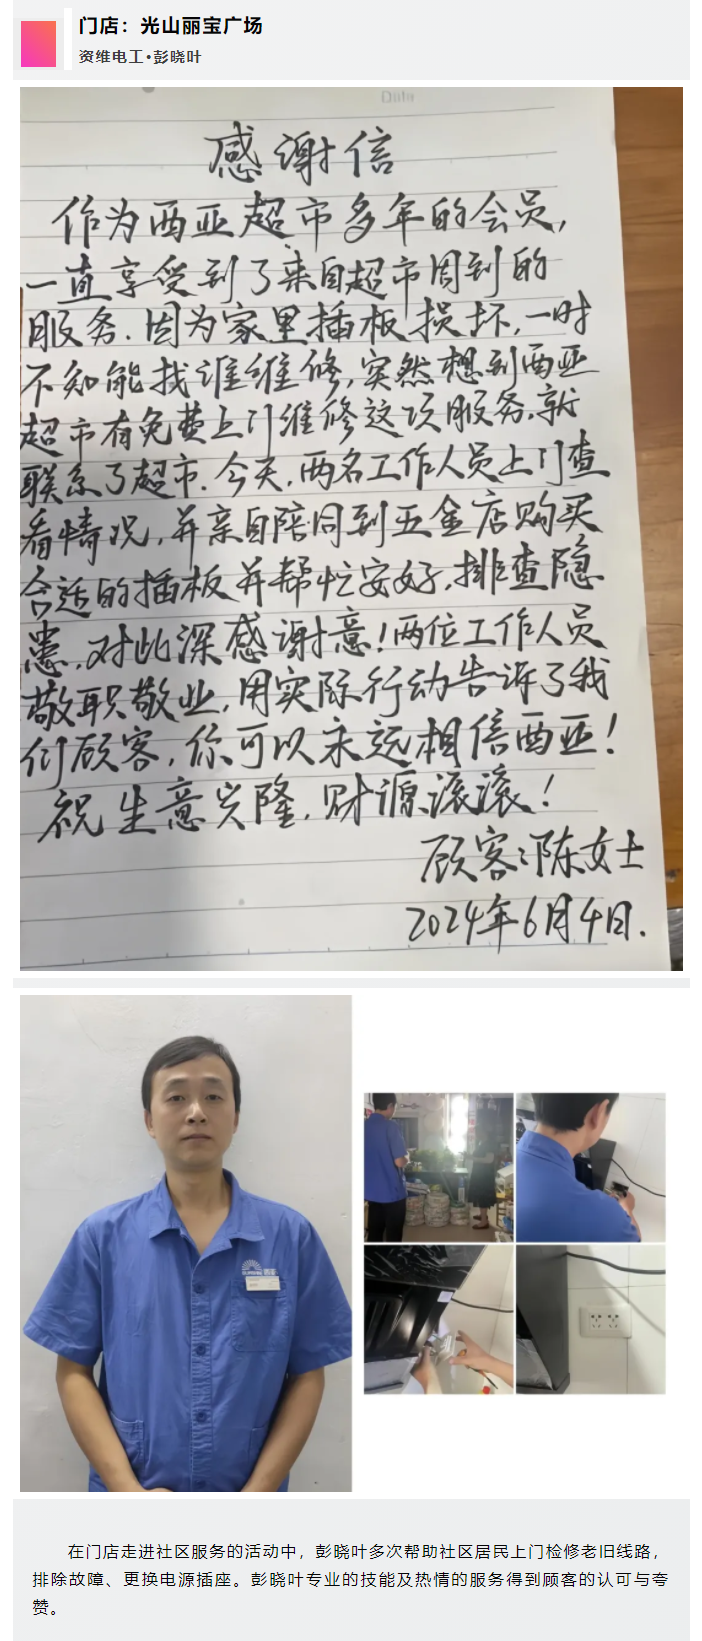 门店：光山丽宝广场
资维电工•彭晓叶
感谢信
作为西亚超市多年的会员，
一直享受到了来自超市周到的
服务.因为家里插板损坏,一时
不知能找谁维修,突然想到西亚
超市有免费上门维修这项服务,就
联系了超市.今天,两名工作人员上门查
看情况,并亲自陪同到五金店购买
合适的插板并帮忙安好,排查隐
患,对此深感谢意!两位工作人员
敬职敬业,用实际行动告诉了我
们顾客,你可以永远相信西亚!
祝生意兴隆,财源滚滚!
顾客:陈女士
2024年6月4日.
在门店走进社区服务的活动中，彭晓叶多次帮助社区居民上门检修老旧线路，
排除故障、更换电源插座。彭晓叶专业的技能及热情的服务得到顾客的认可与夸
赞。